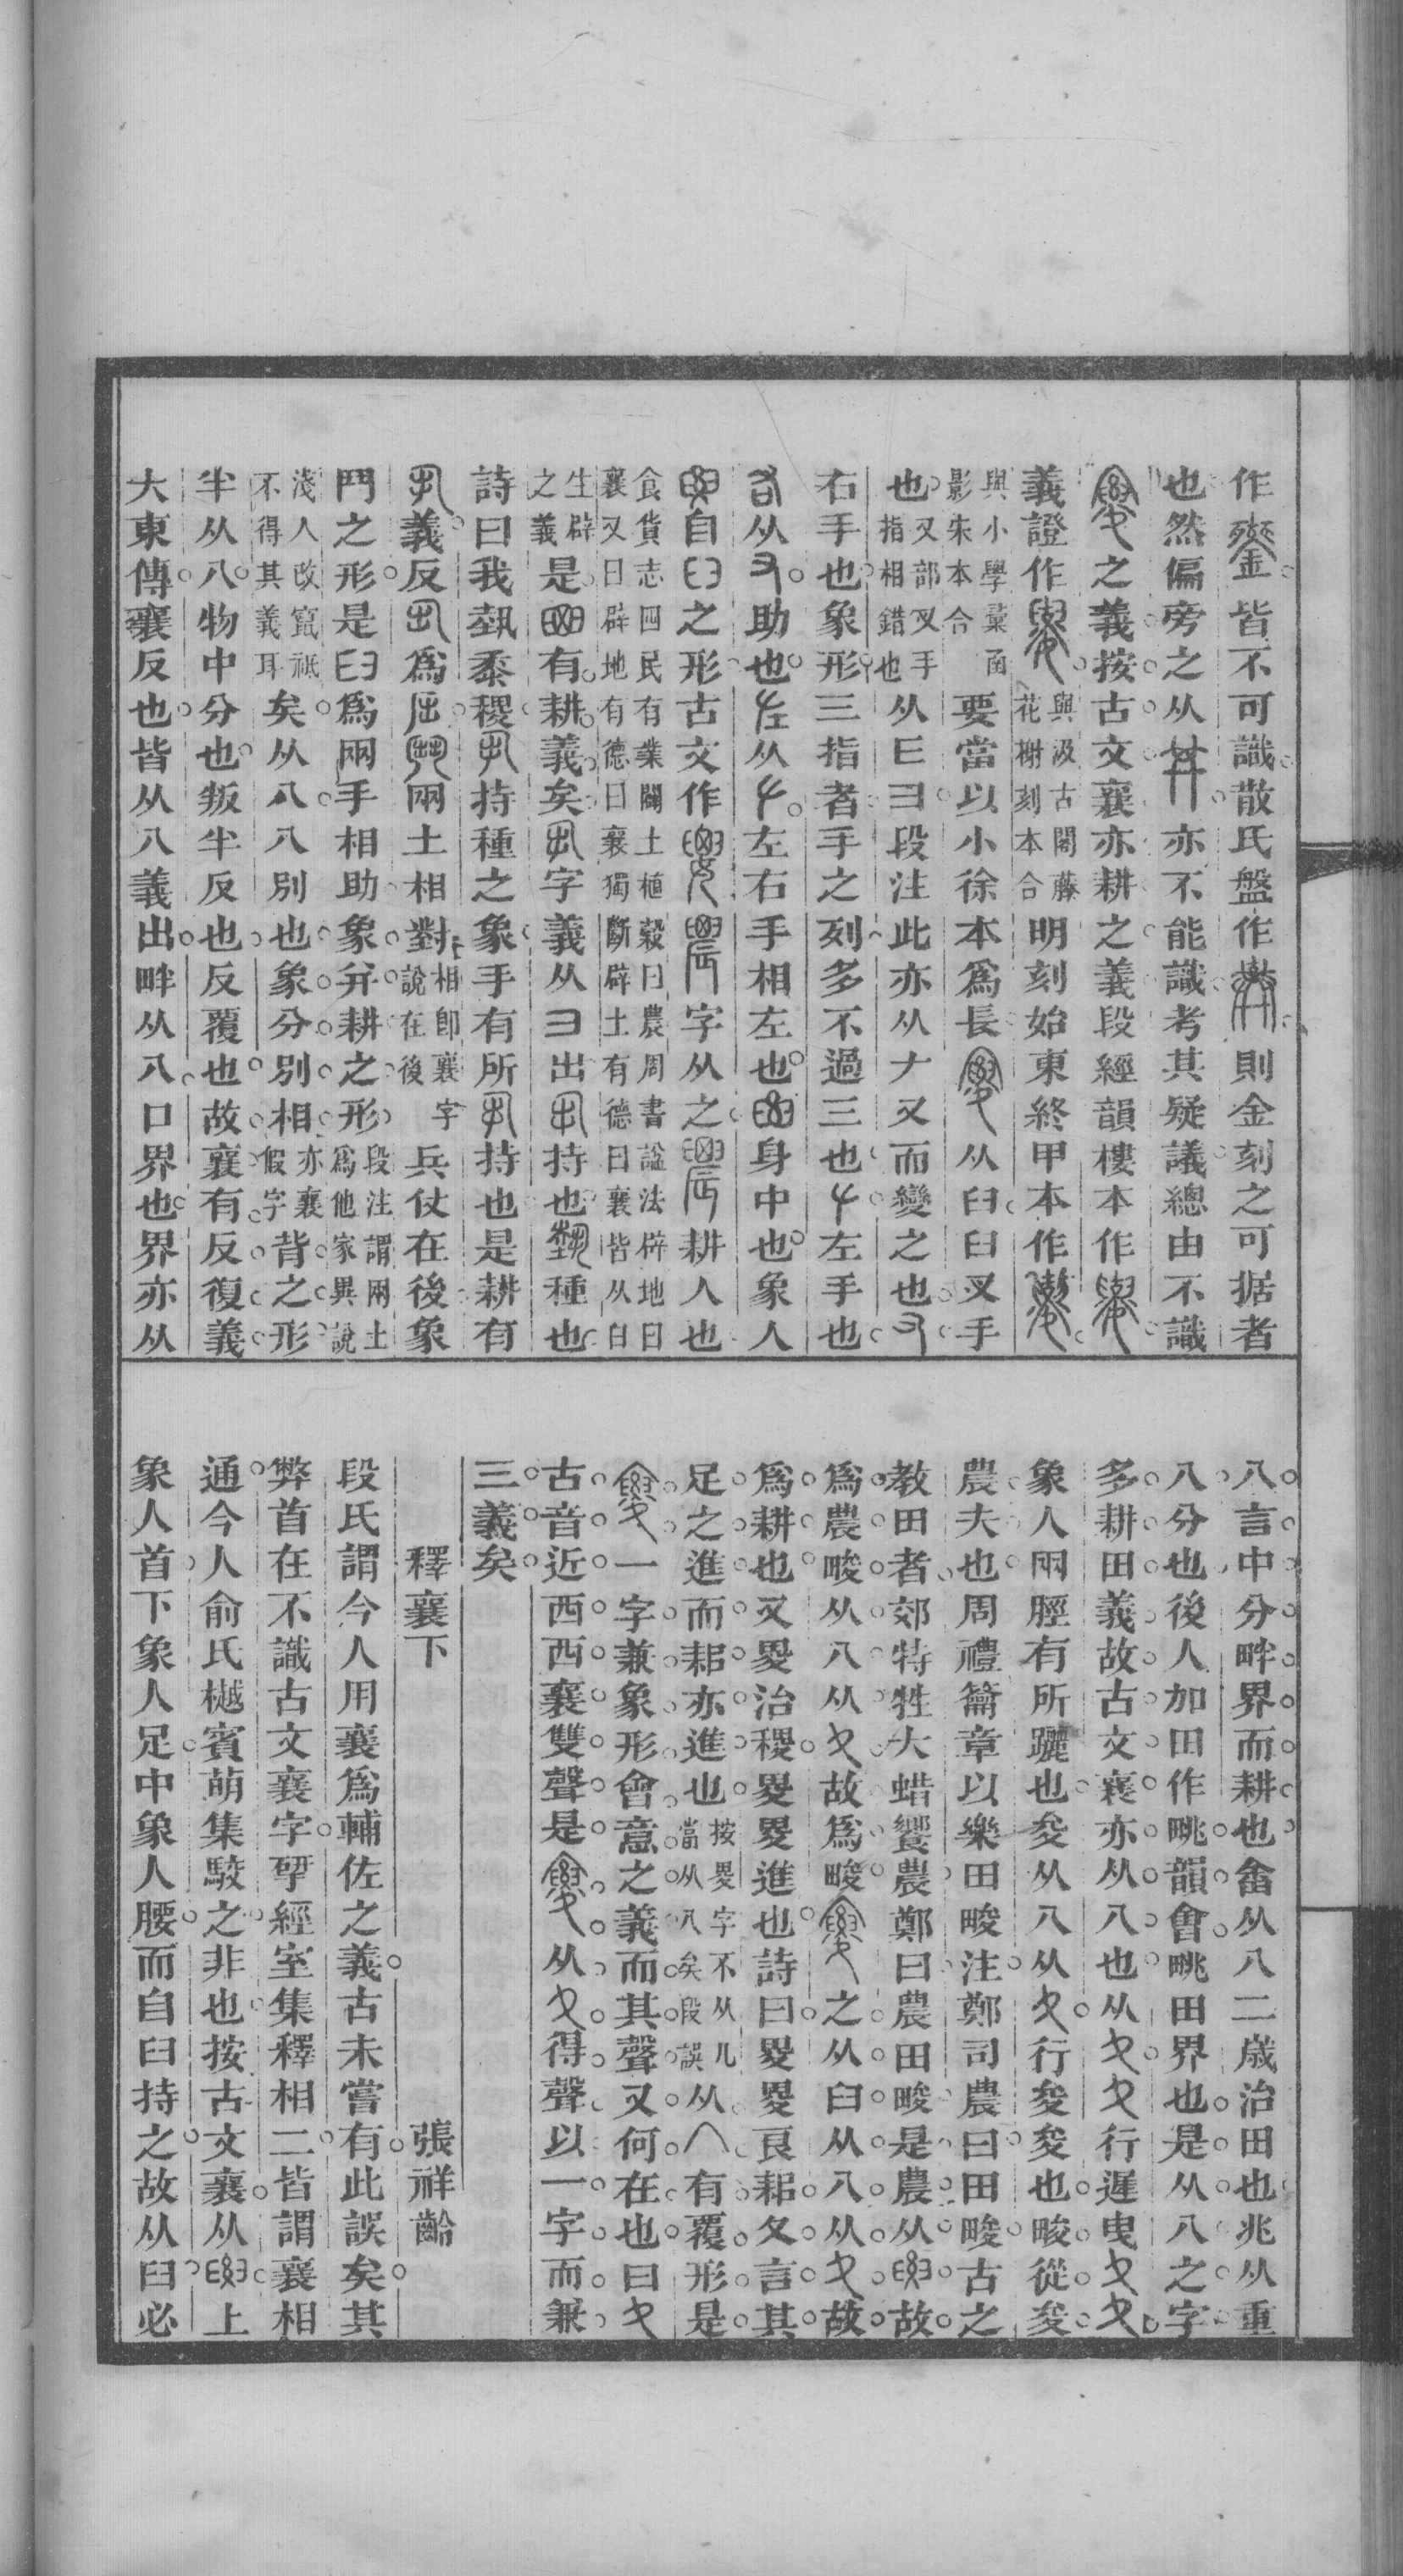 作皆不可識散氏盤作則金刻之可据者
也然偏旁之从亦不能識考其疑議總由不識
之義按古文襄亦耕之義段經韻樓本作
義證作與汲古閣藤花榭刻本合明刻始東終甲本作
與小學彙函影朱本合要當以小徐本爲長从𦥑𦥑叉手
也又部叉手指相錯也从𦣞彐段注此亦从𠂇又而變之也
右手也象形三指者手之列多不過三也左手也
从助也从左右手相左也身中也象人
自𦥑之形古文作字从之耕人也
食貨志四民有業闢土植穀曰農周書諡法辟地曰襄又曰辟地有德曰襄獨斷辟土有德曰襄皆从𦥑
生辟之義是有耕義矣字義从彐出持也種也
詩曰我埶黍稷持種之象手有所持也是耕有
義反爲兩土相對相卽襄字說在後兵仗在後象
鬥之形是𦥑爲兩手相助象幷耕之形段注謂兩土爲他家異說
淺人改竄祇不得其義耳矣从八八別也象分別相亦襄假字背之形
半从八物中分也叛半反也反覆也故襄有反復義
大東傳襄反也皆从八義出畔从八口界也界亦从
八言中分畔界而耕也畬从八二歲治田也兆从重
八分也後人加田作畮韻會畮田界也是从八之字
多耕田義故古文襄亦从八也从夊夊行遲曳夊夊
象人兩脛有所躧也夋从八从夊行夋夋也畯從夋
農夫也周禮籥章以樂田畯注鄭司農曰田畯古之
教田者郊特牲大蜡饗農鄭曰農田畯是農从故
爲農畯从八从夊故爲畯之从𦥑从八从夊故
爲耕也又畟治稷畟畟進也詩曰畟畟良耜夂言其
足之進而耜亦進也按畟字不从儿當从八矣段誤从𠆢有覆形是
一字兼象形會意之義而其聲又何在也曰夊
古音近西西襄雙聲是从夊得聲以一字而兼
三義矣
釋襄下　張祥齡
段氏謂今人用襄爲輔佐之義古未嘗有此誤矣其
弊首在不識古文襄字揅經室集釋相二皆謂襄相
通今人俞氏樾賓萌集駮之非也按古文襄从上
象人首下象人足中象人腰而自𦥑持之故从𦥑必